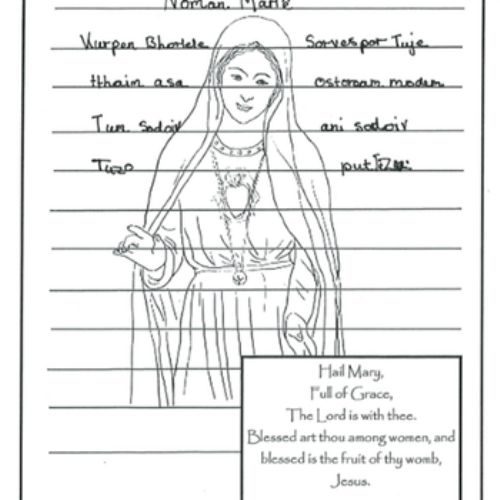 Noman Marie
Kurpen Bhorlele Sorvespor Tuje
thaim asa ostoream modem
Tum sodoiv ani sodoiv
Tuzo put
Hail Mary,
Full of Grace,
The Lord is with thee.
Blessed art thou among women, and
blessed is the fruit of thy womb,
Jesus.